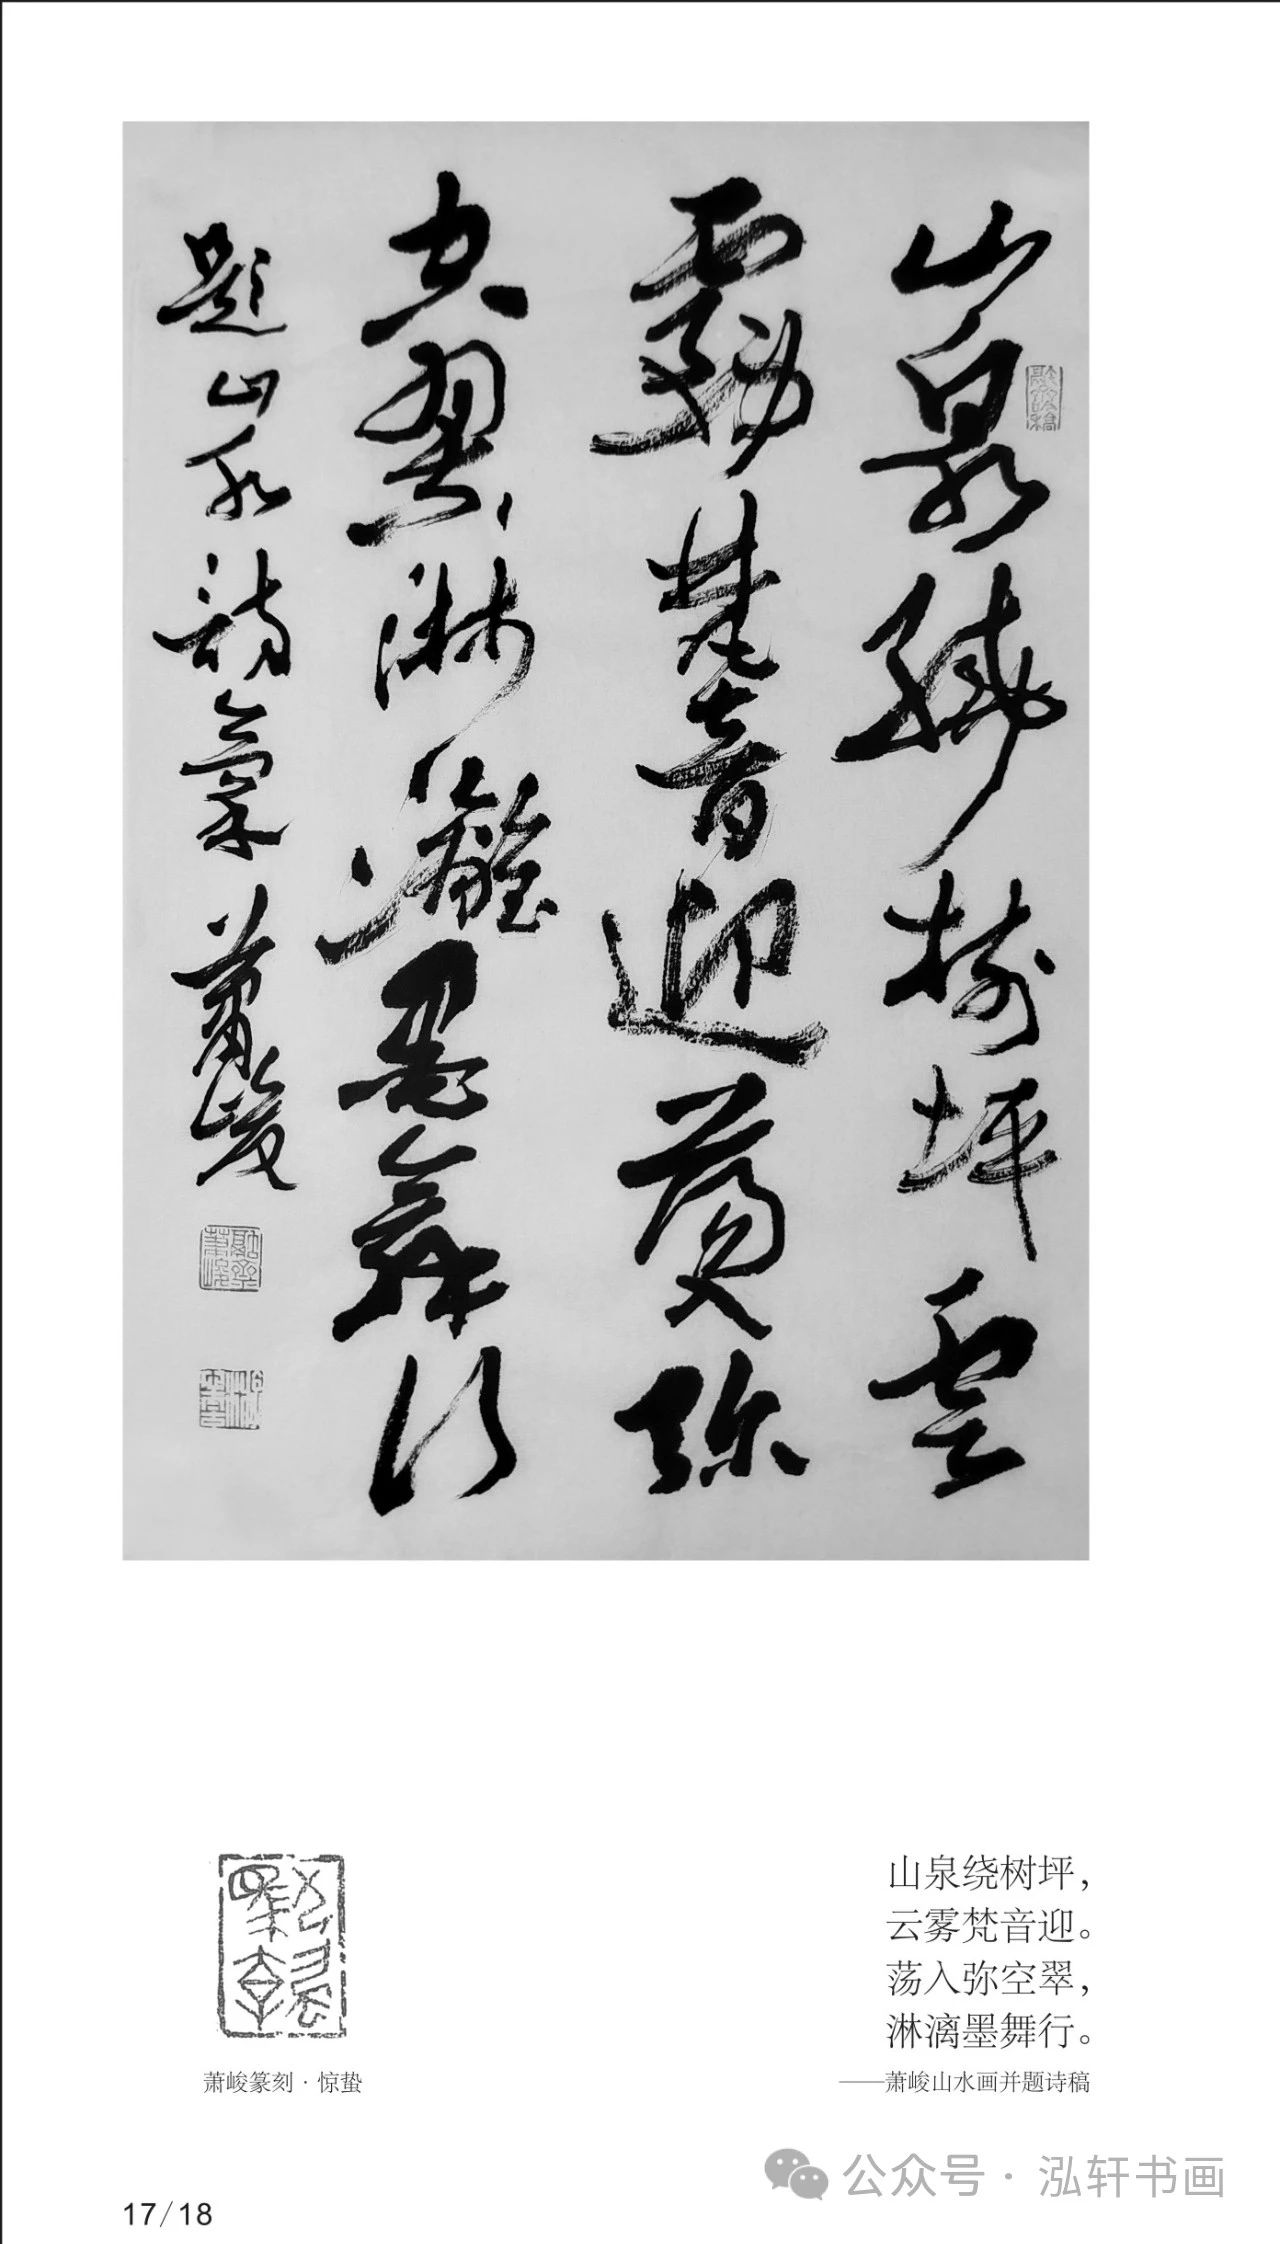 山泉繞樹坪雲
霧梵音迎蕩入弥
空翠淋灕墨舞行
題山水詩稾 蕭峻
山泉绕树坪，
云雾梵音迎。
荡入弥空翠，
淋漓墨舞行。
——萧峻山水画并题诗稿
萧峻篆刻·惊蛰
公众号·泓轩书画
17/18